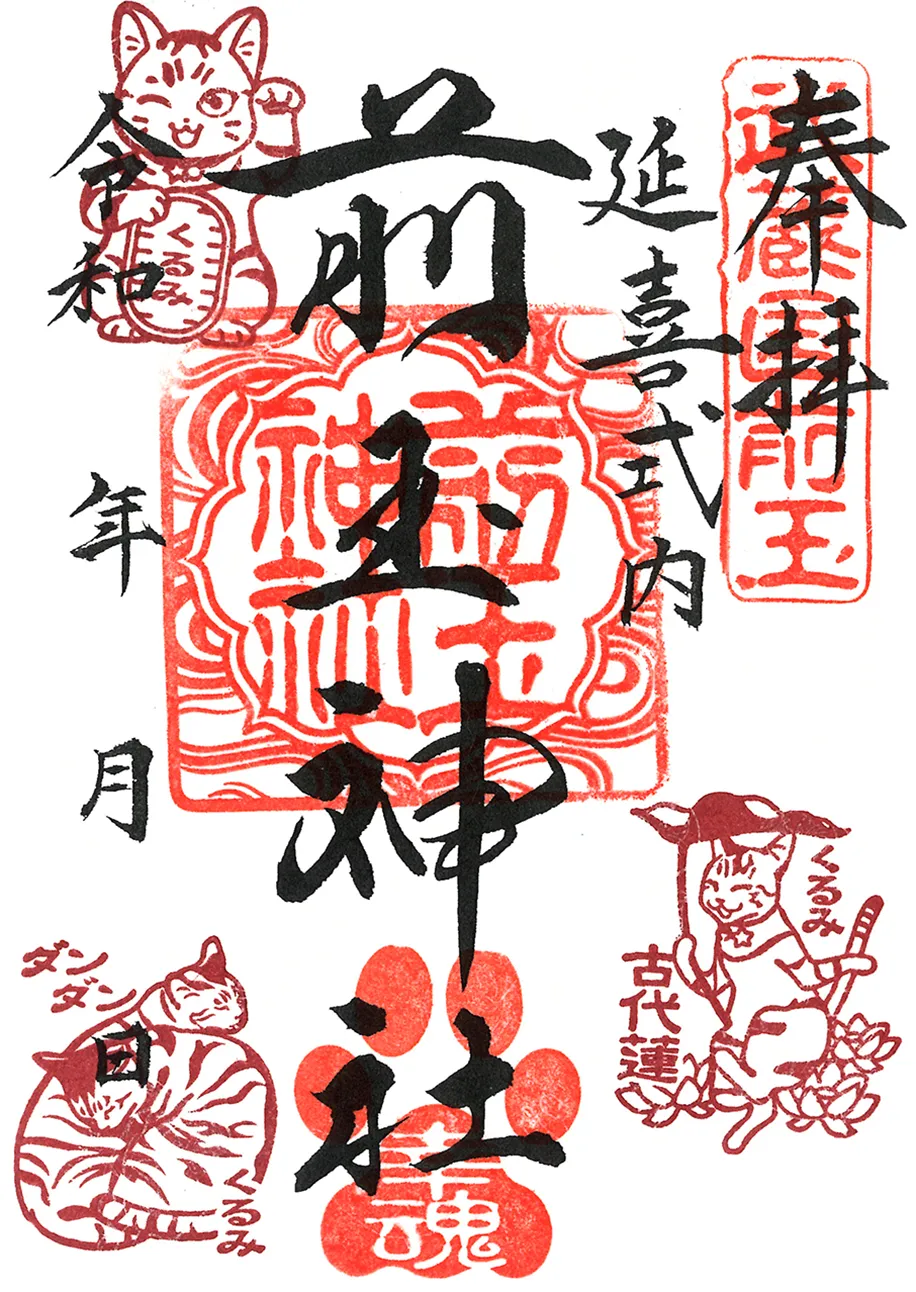 奉拝
武蔵国前玉
延喜式内
前玉神社
前玉神社
幸魂
令和
年
月
日
くるみ
くるみ
古代蓮
ダンダン
くるみ